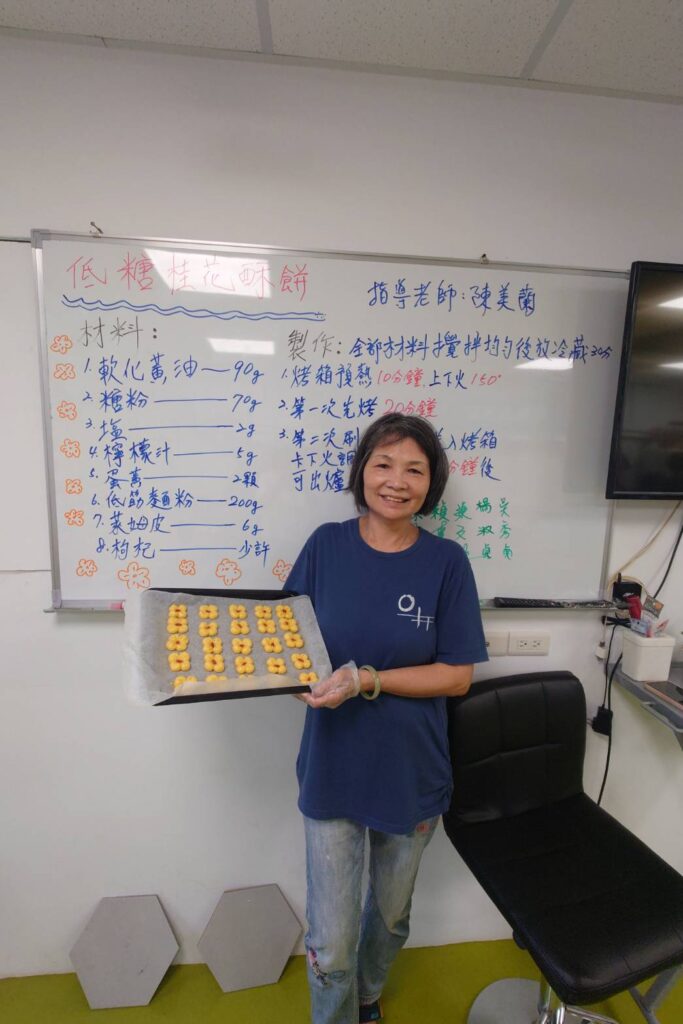 低糖桂花酥餅
指導老師:陳美蘭
材料:
1.軟化黃油—90g
2.糖粉—70g
3.塩—2g
4.檸檬汁—5g
5.蛋黃—2顆
6.低筋麵粉—200g
7.萊姆皮—6g
8.枸杞—少許
製作:全部材料攪拌均勻後放冷藏30分
1.烤箱預熱10分鐘,上下火150°
2.第一次先烤20分鐘
3.第二次刷 入烤箱
卡下火調 分鐘後
可出爐